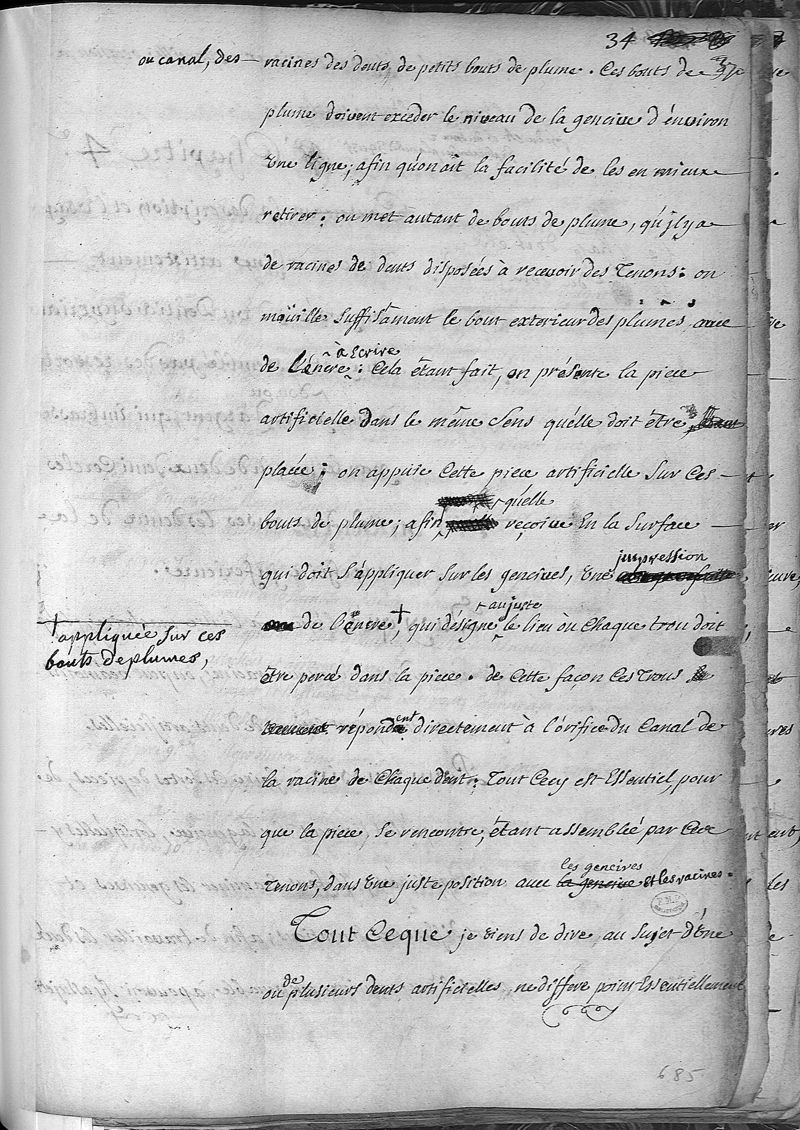 34
ou canal, des racines des dents, de petits bouts de plume. Ces bouts de
plume doivent exceder le niveau de la gencive d'environ
une ligne; afin qu'on ait la facilité de les en mieux
retirer: on met autant de bouts de plume, qu'il y a
de racines de dents disposées à recevoir des Tenons: on
moüille suffisament le bout exterieur des plumes, avec
à Ecrire
de l'éncre: Cela étant fait, on présente la piece
artificielle dans le même sens qu'elle doit être
placée; on appuie cette piece artificielle sur ces
qu'elle
bouts de plume; afin reçoive en la surface
jmpression
qui doit s'appliquer sur les gencives, une
au juste
de l'éncre †, qui désigne le lieu où chaque trou doit
† appliquée sur ces
bouts de plumes,
être percé dans la piece. de cette façon ces trous
répondent directement à l'orifice du Canal de
la racine de chaque dent: Tout cecy est Essentiel, pour
que la piece, se rencontre, étant assemblée par ces
les gencives
Tenons, dans une juste position avec la gencive et les racines.
Tout ce que je viens de dire, au sujet d'une
de
ou plusieurs dents artificielles, ne différe point Essentiellement
685